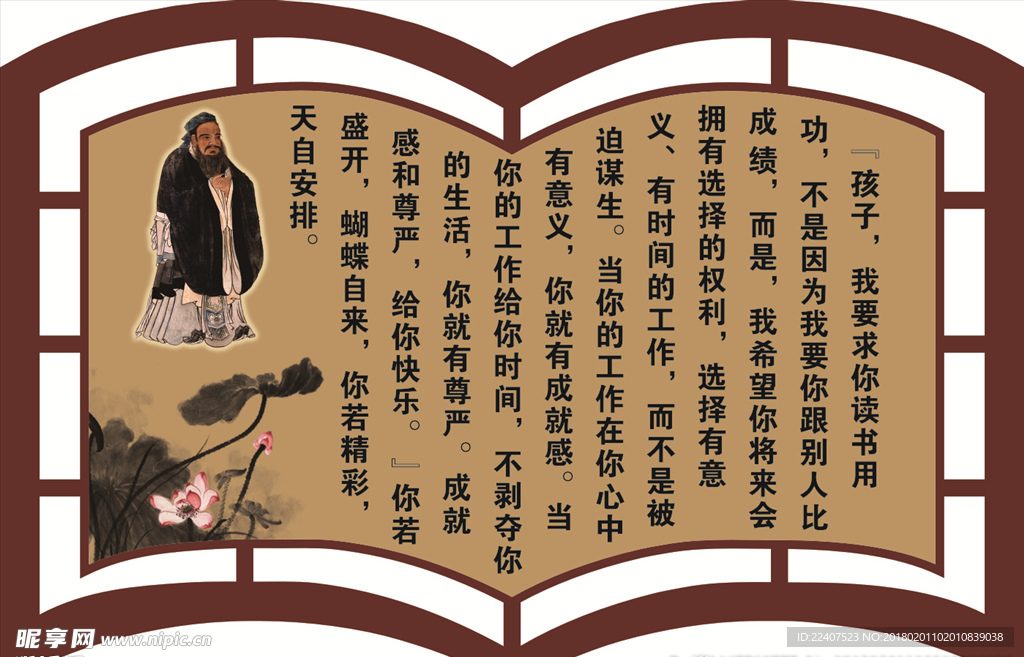 『孩子，我要求你读书用
功，不是因为我要你跟别人比
成绩，而是，我希望你将来会
拥有选择的权利，选择有意
义、有时间的工作，而不是被
迫谋生。当你的工作在你心中
有意义，你就有成就感。当
你的工作给你时间，不剥夺你
的生活，你就有尊严。成就
感和尊严，给你快乐。』你若
盛开，蝴蝶自来，你若精彩，
天自安排。
昵享网 www.nipic.cn
ID:22407523 NO:20180201102010839038